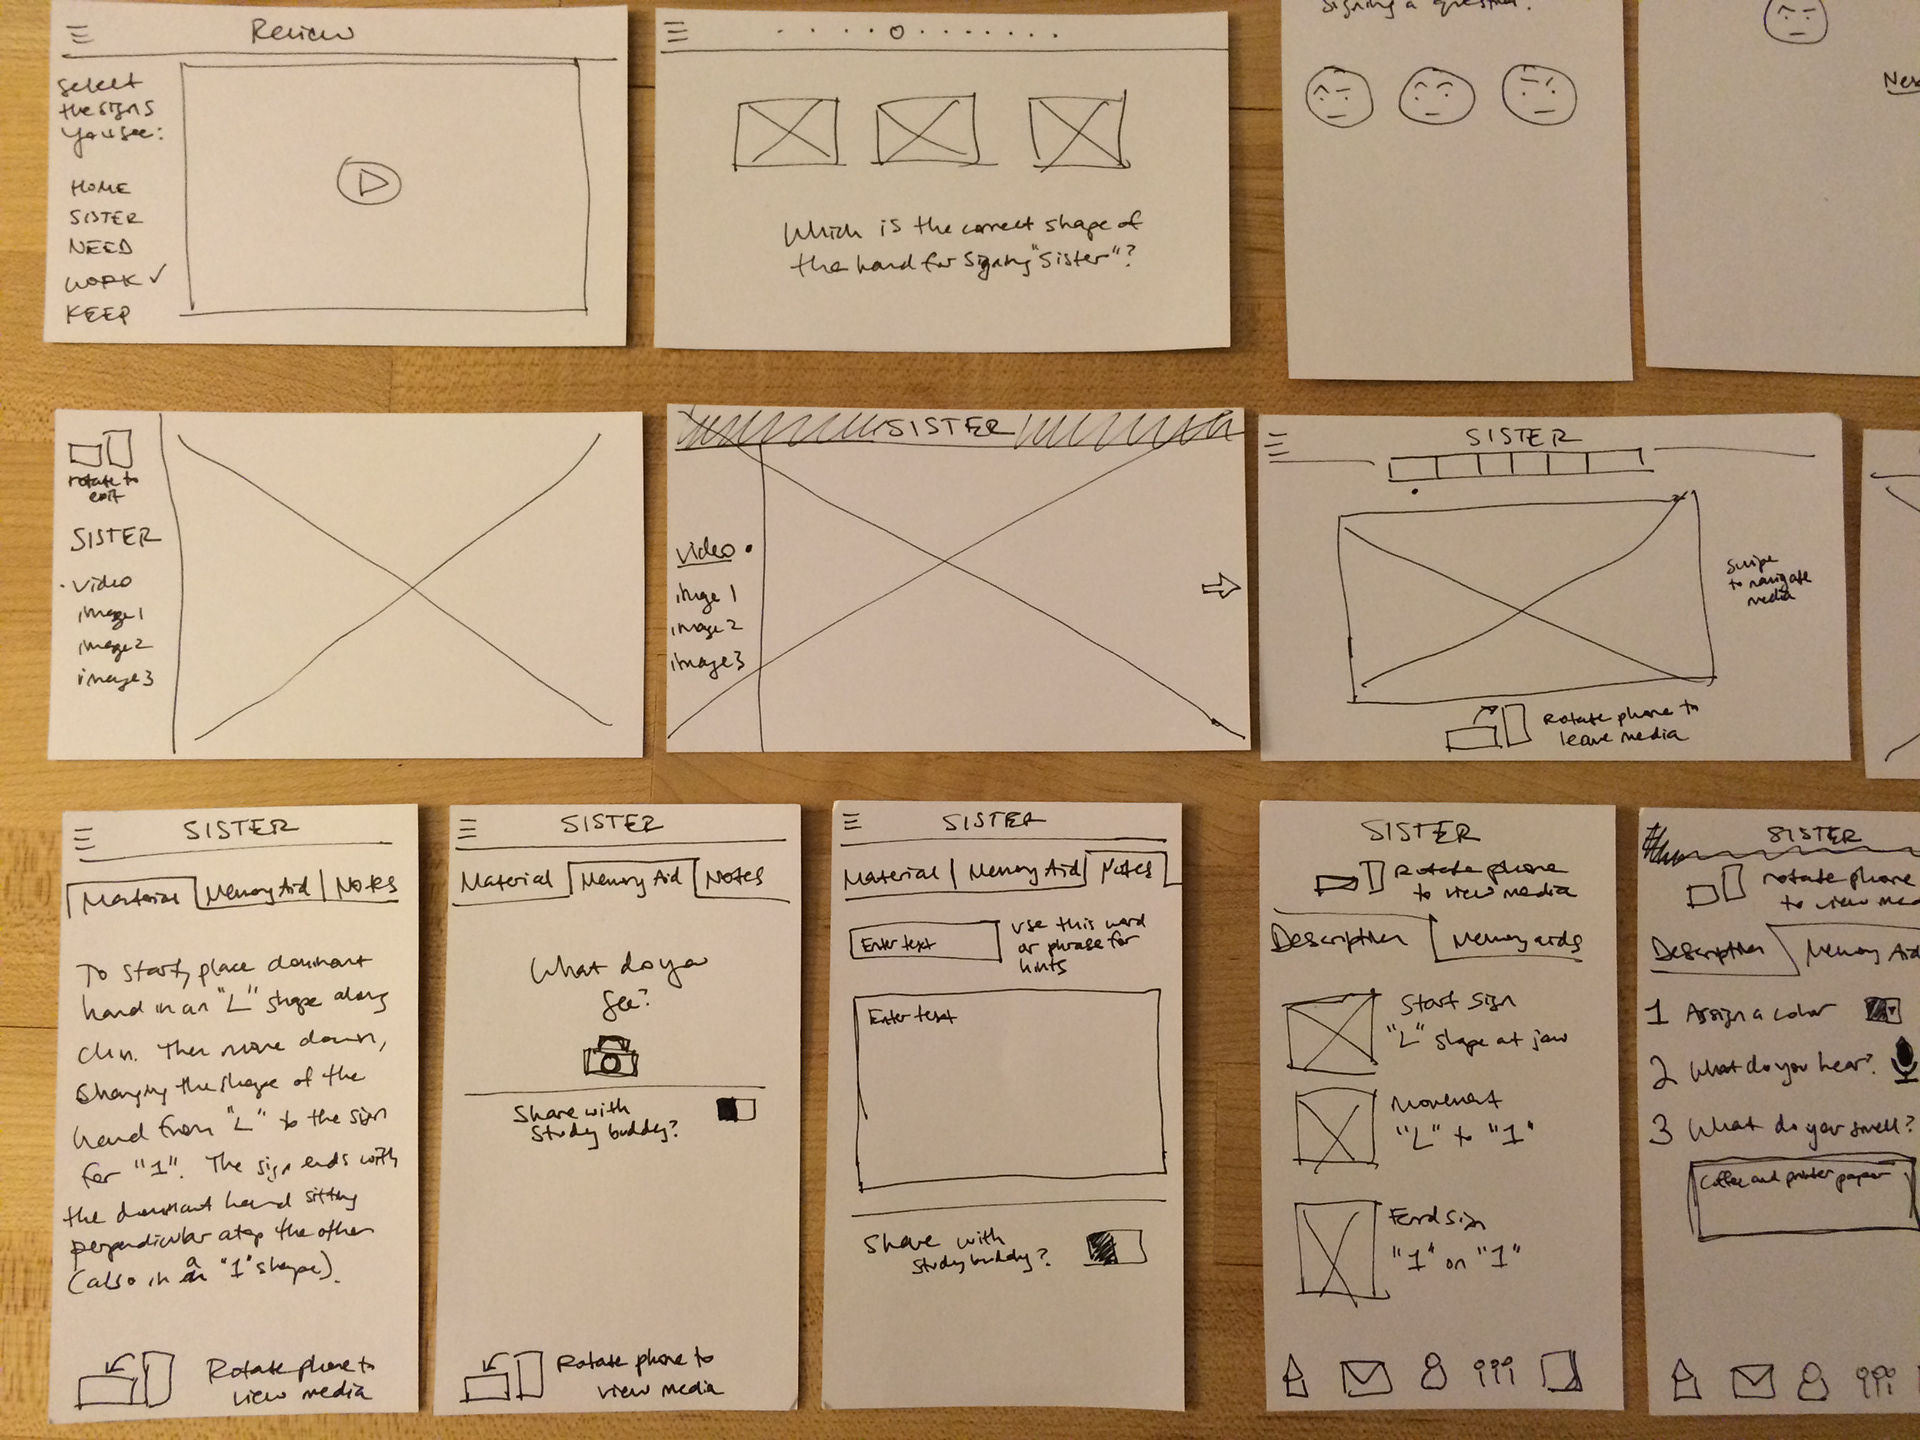 Review
Select
the signs
you see:
HOME
SISTER
NEED
WORK ✓
KEEP
Which is the correct shape of
the hand for signing "Sister"?
signing a question?
rotate to
exit
SISTER
· video
image 1
image 2
image 3
SISTER
video •
image 1
image 2
image 3
SISTER
Swipe
to navigate
media
Rotate phone to
leave media
SISTER
Material | Memory Aid | Notes
To start, place dominant
hand in an "L" shape along
chin. Then move down,
changing the shape of the
hand from "L" to the sign
for "1". The sign ends with
the dominant hand sitting
perpendicular atop the other
(also in a "1" shape).
Rotate phone to
view media
SISTER
Material | Memory Aid | Notes
What do you
see?
Share with
study buddy?
Rotate phone to
view media
SISTER
Material | Memory Aid | Notes
Enter text
use this word
or phrase for
hints
Enter text
Share with
study buddy?
SISTER
Rotate phone
to view media
Description | Memory aids
Start sign
"L" shape at jaw
Movement
"L" to "1"
End sign
"1" on "1"
SISTER
rotate phone
to view
Description
Memory Aid
1 Assign a color
2 What do you hear?
3 What do you smell?
Coffee and printer paper